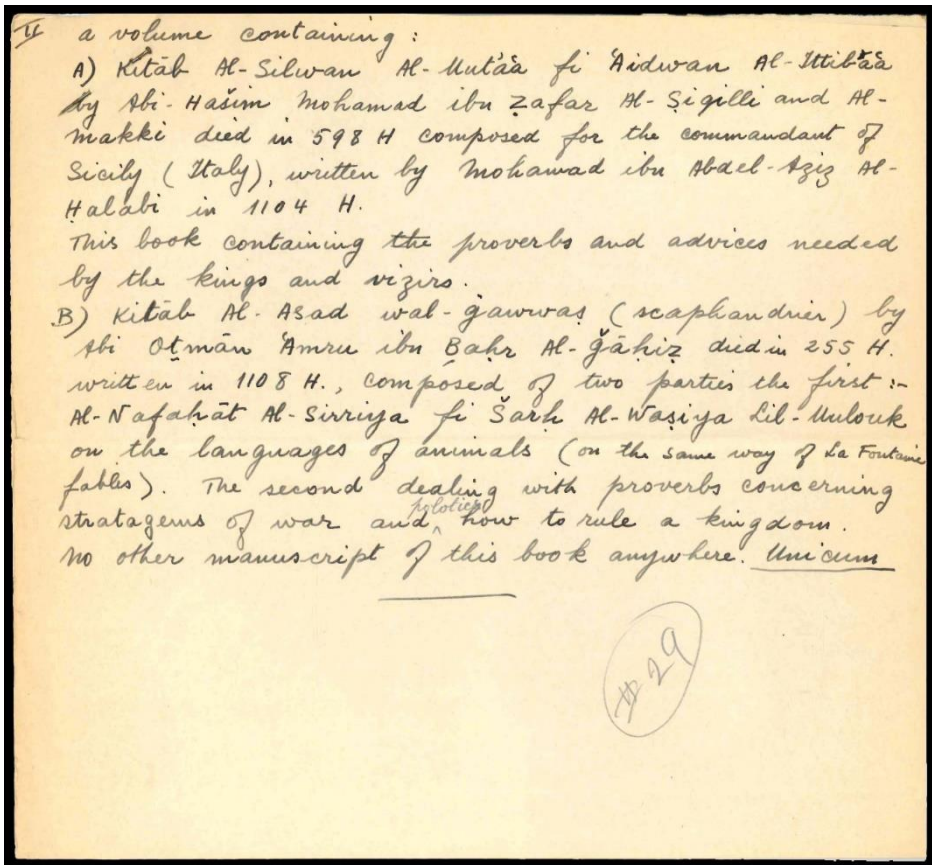 II a volume containing :
A) Kitāb Al-Silwan Al-Mutʿāʿa fi ʿAidwan Al-Ittibāʿā
by Abi-Hašim Mohamad ibu Zafar Al-Ṣigilli and Al-
Makki died in 598 H composed for the commandant of
Sicily (Italy), written by Mohamad ibu Abdel-Aziz Al-
Ḥalabi in 1104 H.
This book containing the proverbs and advices needed
by the kings and vizirs.
B) Kitāb Al-Asad wal-ġawwaṣ (scaphandrier) by
Abi Oṯmān ʿAmru ibu Baḥr Al-Ǧāḥiẓ died in 255 H.
written in 1108 H., composed of two parties the first :-
Al-Nafaḥāt Al-Sirriya fi Šarḥ Al-Waṣiya Lil-Mulouk
on the languages of animals (on the same way of La Fontaine
fables). The second dealing with proverbs concerning
stratagems of war and polotics how to rule a kingdom.
No other manuscript of this book anywhere. Unicum
#29